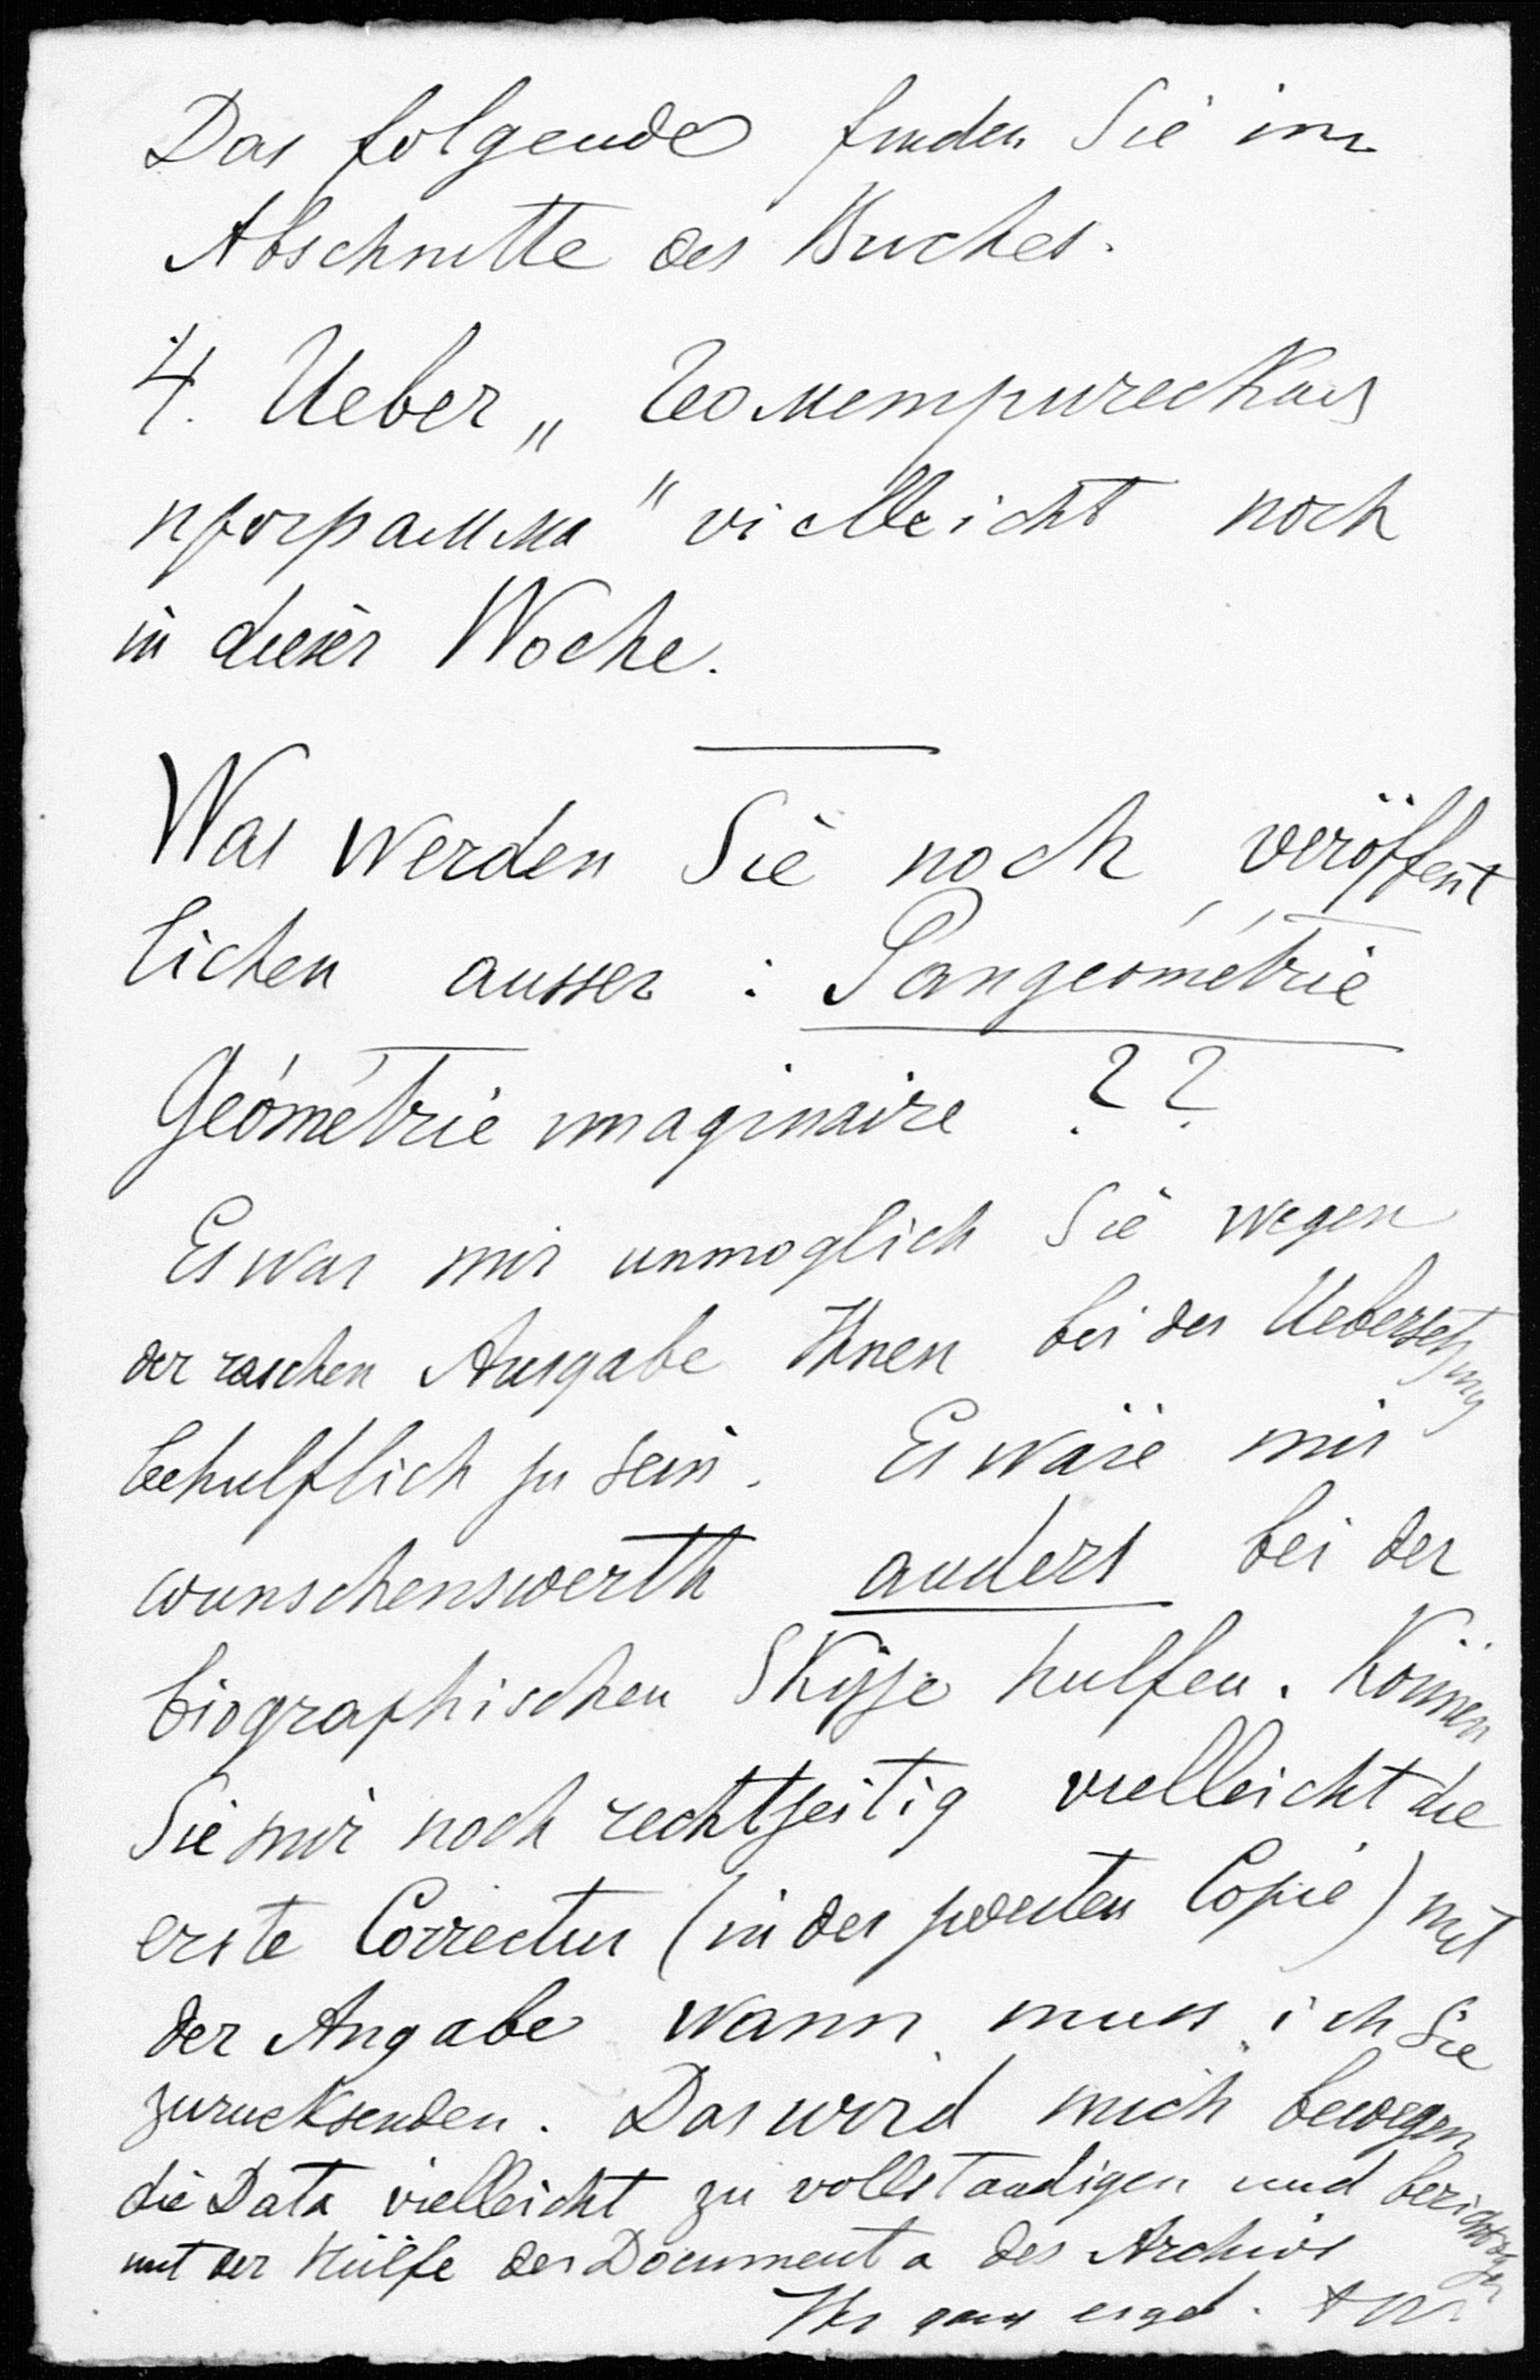 Das folgende finden Sie im
Abschnitte des Buches.
4. Ueber „Геометрическая
программа“ vielleicht noch
in dieser Woche.
Was werden Sie noch veröffent
lichen ausser : Pangéométrie
Géométrie imaginaire ??
Es war mir unmoglich Sie wegen
der raschen Ausgabe Ihnen bei der Uebersetzung
behulflich zu sein. Es wäre mir
wunschenswerth anders bei der
biographischen Skizze hulfen. Können
Sie mir noch rechtzeitig vielleicht die
erste Correctur (in der zweiten Copie) mit
der Angabe wann muss ich Sie
zurucksenden. Das wird mich bewegen
die Data vielleicht zu vollstandigen und berichtigen
mit der Hülfe der Documenta des Archivs
Ihr ganz ergeb.